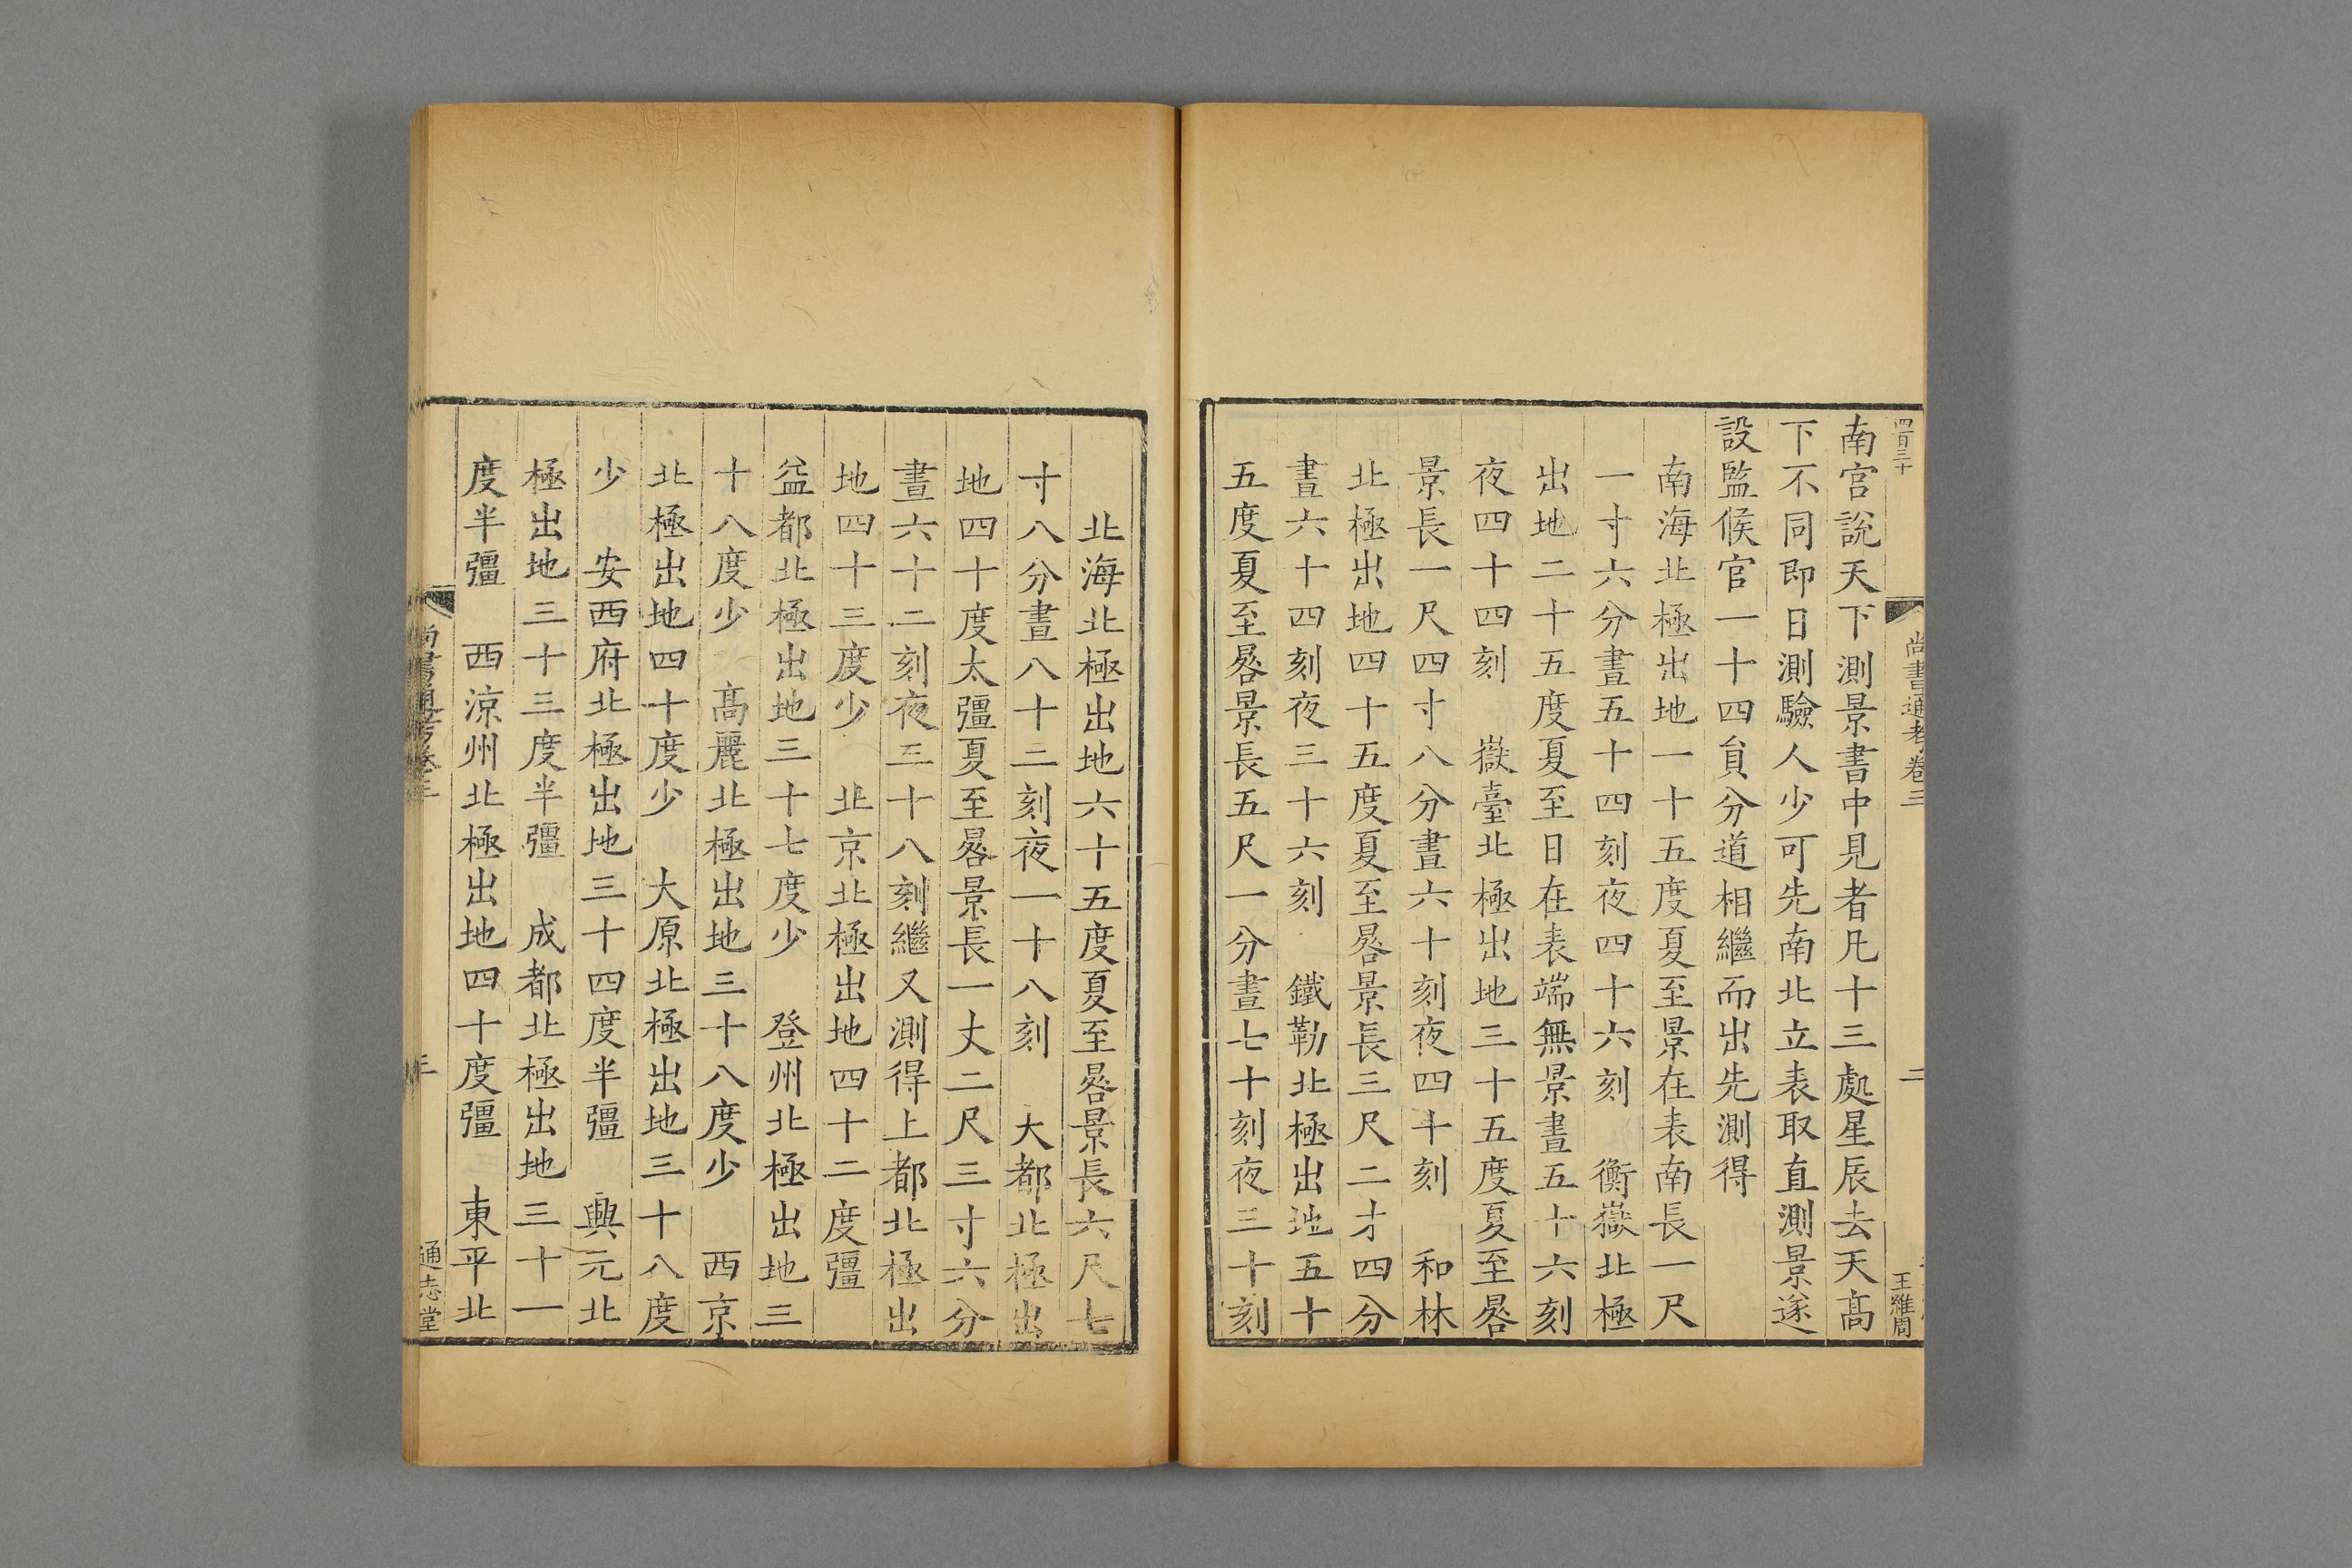 四百三十
尚書通考卷三
二
王維周
南宮說天下測景書中見者凡十三處星辰去天高
下不同即日測驗人少可先南北立表取直測景遂
設監候官一十四員分道相繼而出先測得
南海北極出地一十五度夏至景在表南長一尺
一寸六分晝五十四刻夜四十六刻　衡嶽北極
出地二十五度夏至日在表端無景晝五十六刻
夜四十四刻　嶽臺北極出地三十五度夏至晷
景長一尺四寸八分晝六十刻夜四十刻　和林
北極出地四十五度夏至晷景長三尺二寸四分
晝六十四刻夜三十六刻　鐵勒北極出地五十
五度夏至晷景長五尺一分晝七十刻夜三十刻
北海北極出地六十五度夏至晷景長六尺七
寸八分晝八十二刻夜一十八刻　大都北極出
地四十度太彊夏至晷景長一丈二尺三寸六分
晝六十二刻夜三十八刻繼又測得上都北極出
地四十三度少　北京北極出地四十二度彊
益都北極出地三十七度少　登州北極出地三
十八度少　高麗北極出地三十八度少　西京
北極出地四十度少　大原北極出地三十八度
少　安西府北極出地三十四度半彊　興元北
極出地三十三度半彊　成都北極出地三十一
度半彊　西涼州北極出地四十度彊　東平北
尚書通考卷三
三
通志堂